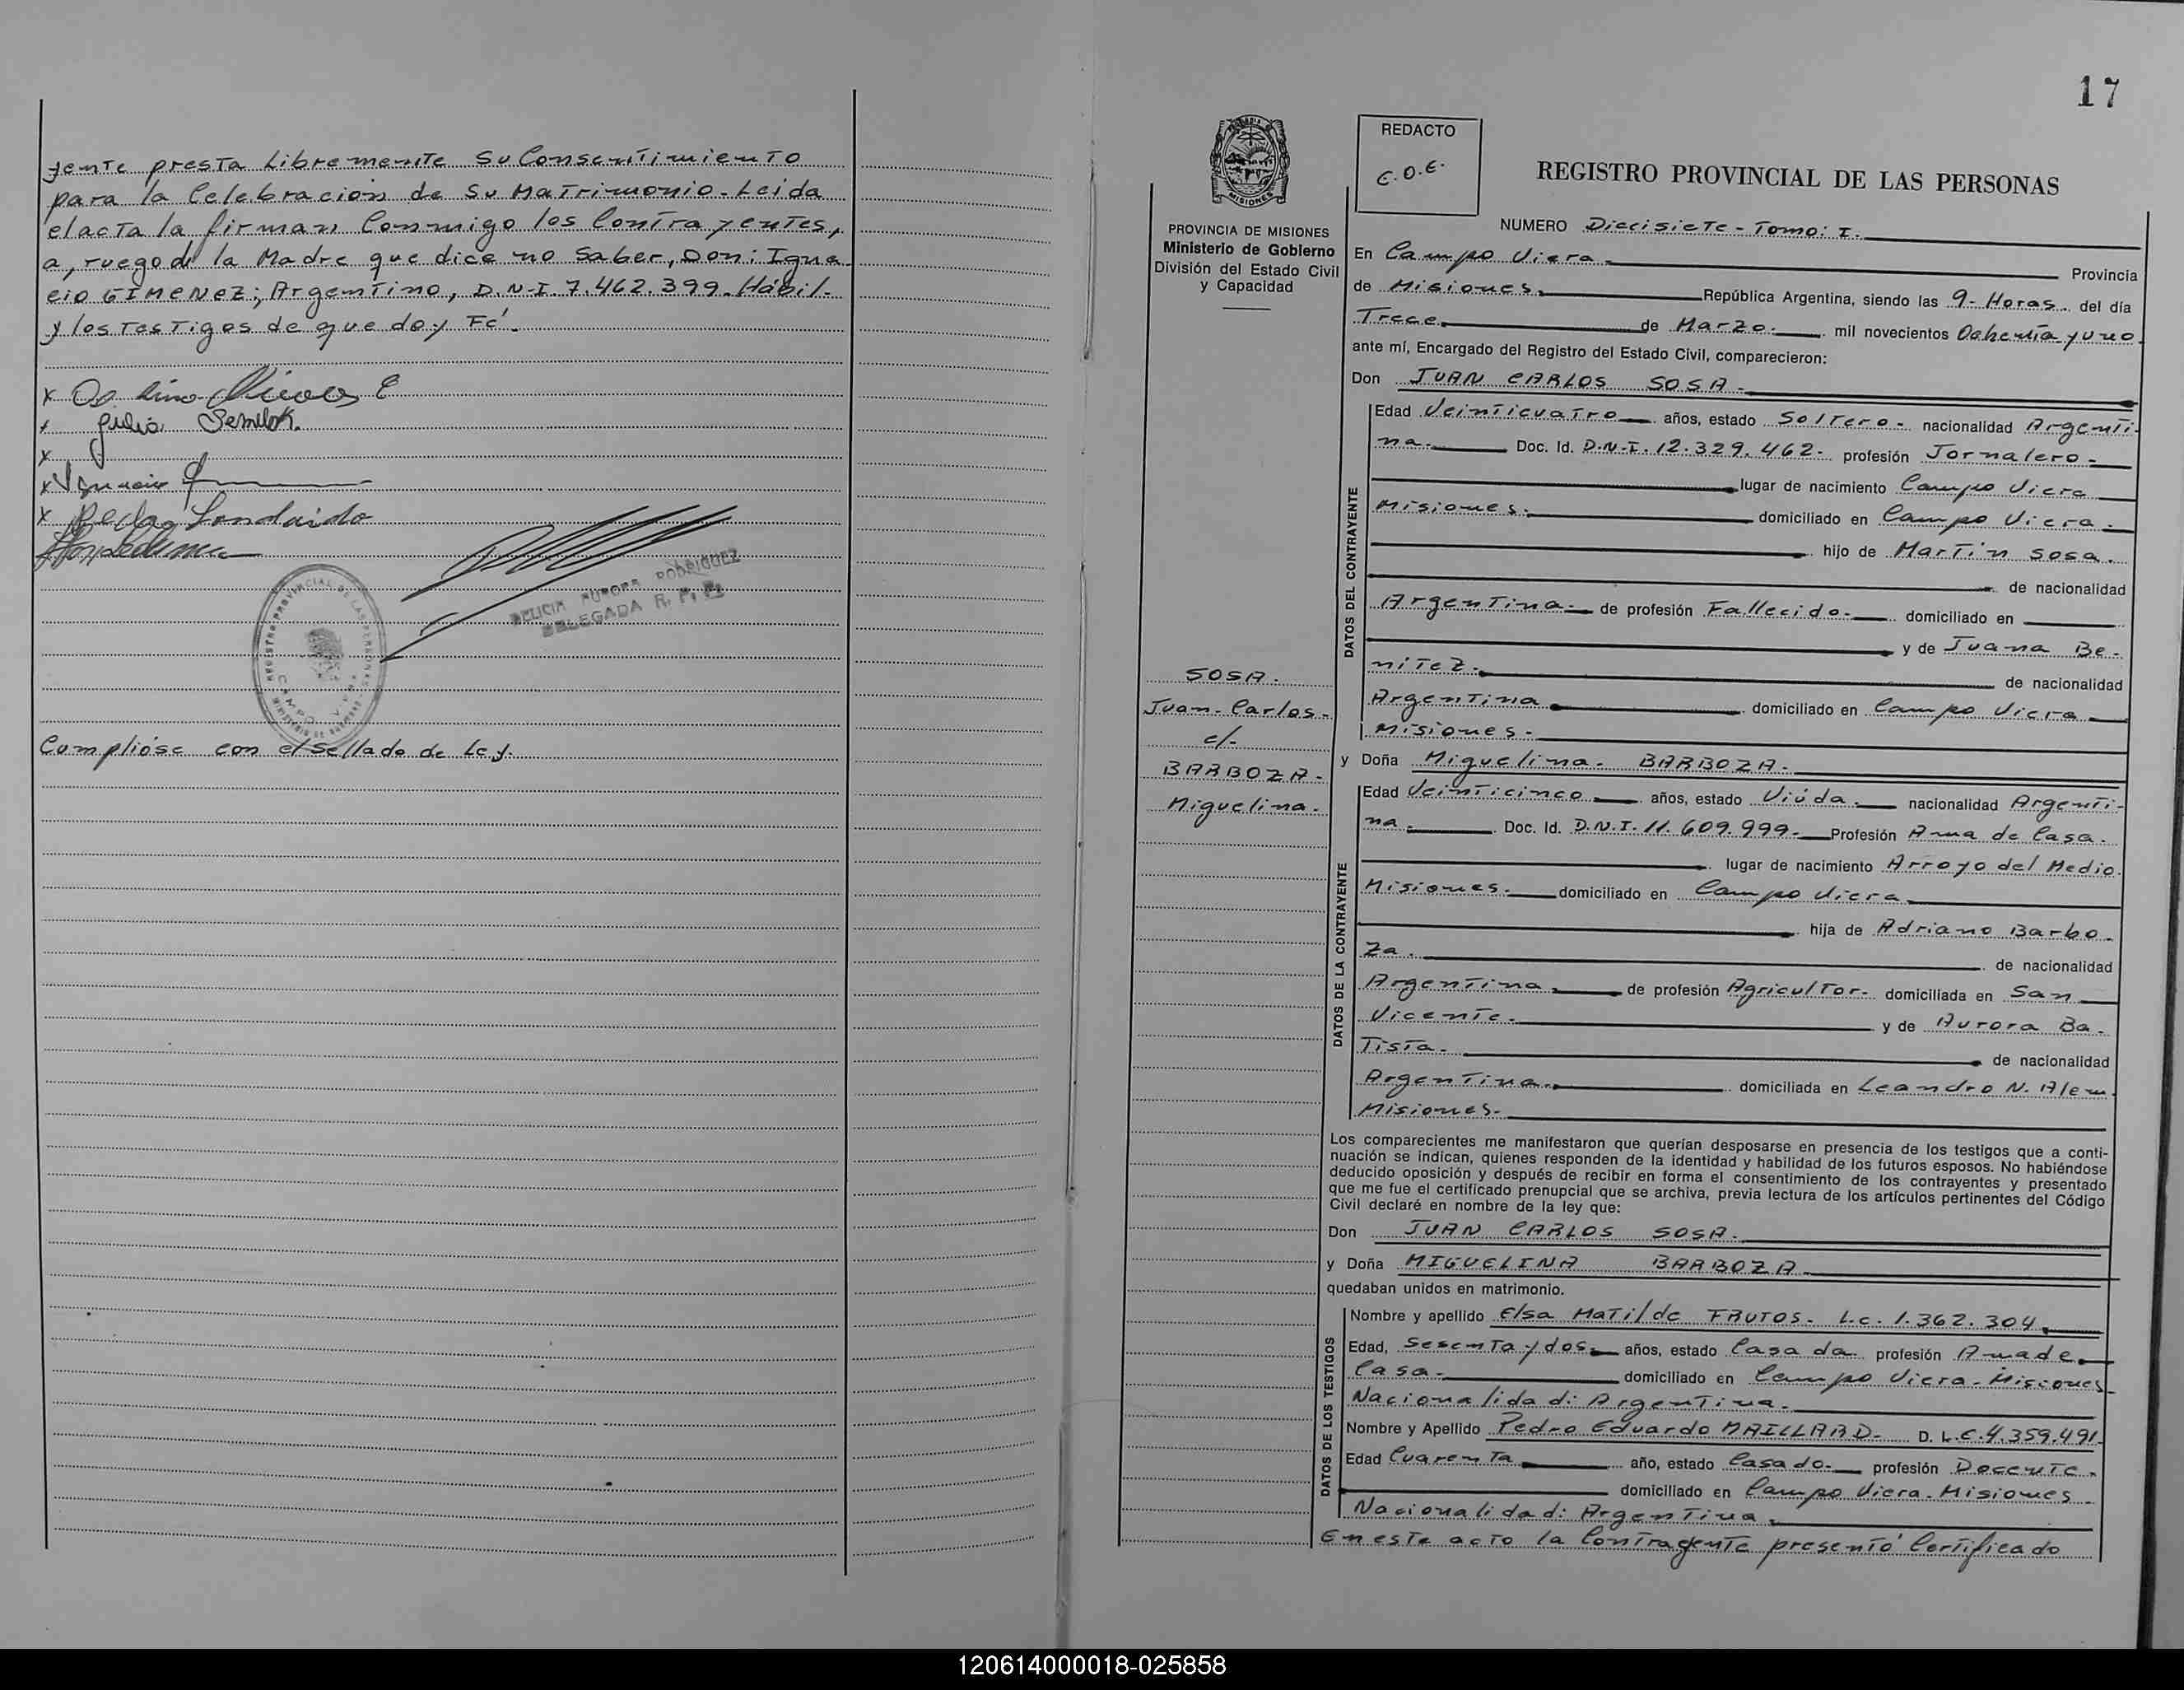 yente presta Libremente Su Consentimiento
para la Celebración de Su Matrimonio-Leida
el acta la firman Conmigo los Contrayentes,
a, ruego de la Madre que dice no Saber, Don: Igna
cio GIMENEZ; Argentino, D.N.I. 7.462.399. Hábil-
y los Testigos de que doy Fé.
x
x Julia
x
x Ignacio
x
REGISTRO PROVINCIAL DE LAS PERSONAS
CAMPO
DELICIA AURORA RODRIGUEZ
DELEGADA R. P. P.
Cumplióse con el Sellado de Ley.
17
REDACTO
C.O.E.
REGISTRO PROVINCIAL DE LAS PERSONAS
MISIONES
PROVINCIA DE MISIONES
Ministerio de Gobierno
División del Estado Civil
y Capacidad
SOSA.
Juan-Carlos-
c/-
BARBOZA-
Miguelina.
NUMERO Diecisiete - Tomo: I.
En Campo Viera. Provincia
de Misiones. República Argentina, siendo las 9- Horas. del día
Trece. de Marzo. mil novecientos Ochenta y uno.
ante mí, Encargado del Registro del Estado Civil, comparecieron:
Don JUAN CARLOS SOSA.
DATOS DEL CONTRAYENTE
Edad Veinticuatro años, estado Soltero- nacionalidad Argenti-
na. Doc. Id. D.N.I. 12.329.462- profesión Jornalero-
lugar de nacimiento Campo Viera
Misiones. domiciliado en Campo Viera-
hijo de Martín Sosa.
de nacionalidad
Argentina. de profesión Fallecido. domiciliado en
y de Juana Be-
nitez. de nacionalidad
Argentina domiciliado en Campo Viera
Misiones-
y Doña Miguelina- BARBOZA-
DATOS DE LA CONTRAYENTE
Edad Veinticinco años, estado Viúda. nacionalidad Argenti-
na. Doc. Id. D.N.I. 11.609.999- Profesión Ama de Casa.
lugar de nacimiento Arroyo del Medio.
Misiones. domiciliado en Campo Viera
hija de Adriano Barbo-
za. de nacionalidad
Argentina. de profesión Agricultor- domiciliada en San
Vicente- y de Aurora Ba-
Tista- de nacionalidad
Argentina. domiciliada en Leandro N. Alem.
Misiones-
Los comparecientes me manifestaron que querían desposarse en presencia de los testigos que a conti-
nuación se indican, quienes responden de la identidad y habilidad de los futuros esposos. No habiéndose
deducido oposición y después de recibir en forma el consentimiento de los contrayentes y presentado
que me fue el certificado prenupcial que se archiva, previa lectura de los artículos pertinentes del Código
Civil declaré en nombre de la ley que:
Don JUAN CARLOS SOSA.
y Doña MIGUELINA BARBOZA
quedaban unidos en matrimonio.
DATOS DE LOS TESTIGOS
Nombre y apellido Elsa Matilde FRUTOS- L.C. 1.362.304.
Edad, Sesenta y dos años, estado Casada profesión Ama de
Casa- domiciliado en Campo Viera-Misiones-
Nacionalidad: Argentina.
Nombre y Apellido Pedro Eduardo MAILLARD- D. L.E. 4.359.491-
Edad Cuarenta año, estado Casado- profesión Docente-
domiciliado en Campo Viera-Misiones-
Nacionalidad: Argentina.
En este acto la Contrayente presentó Certificado
120614000018-025858